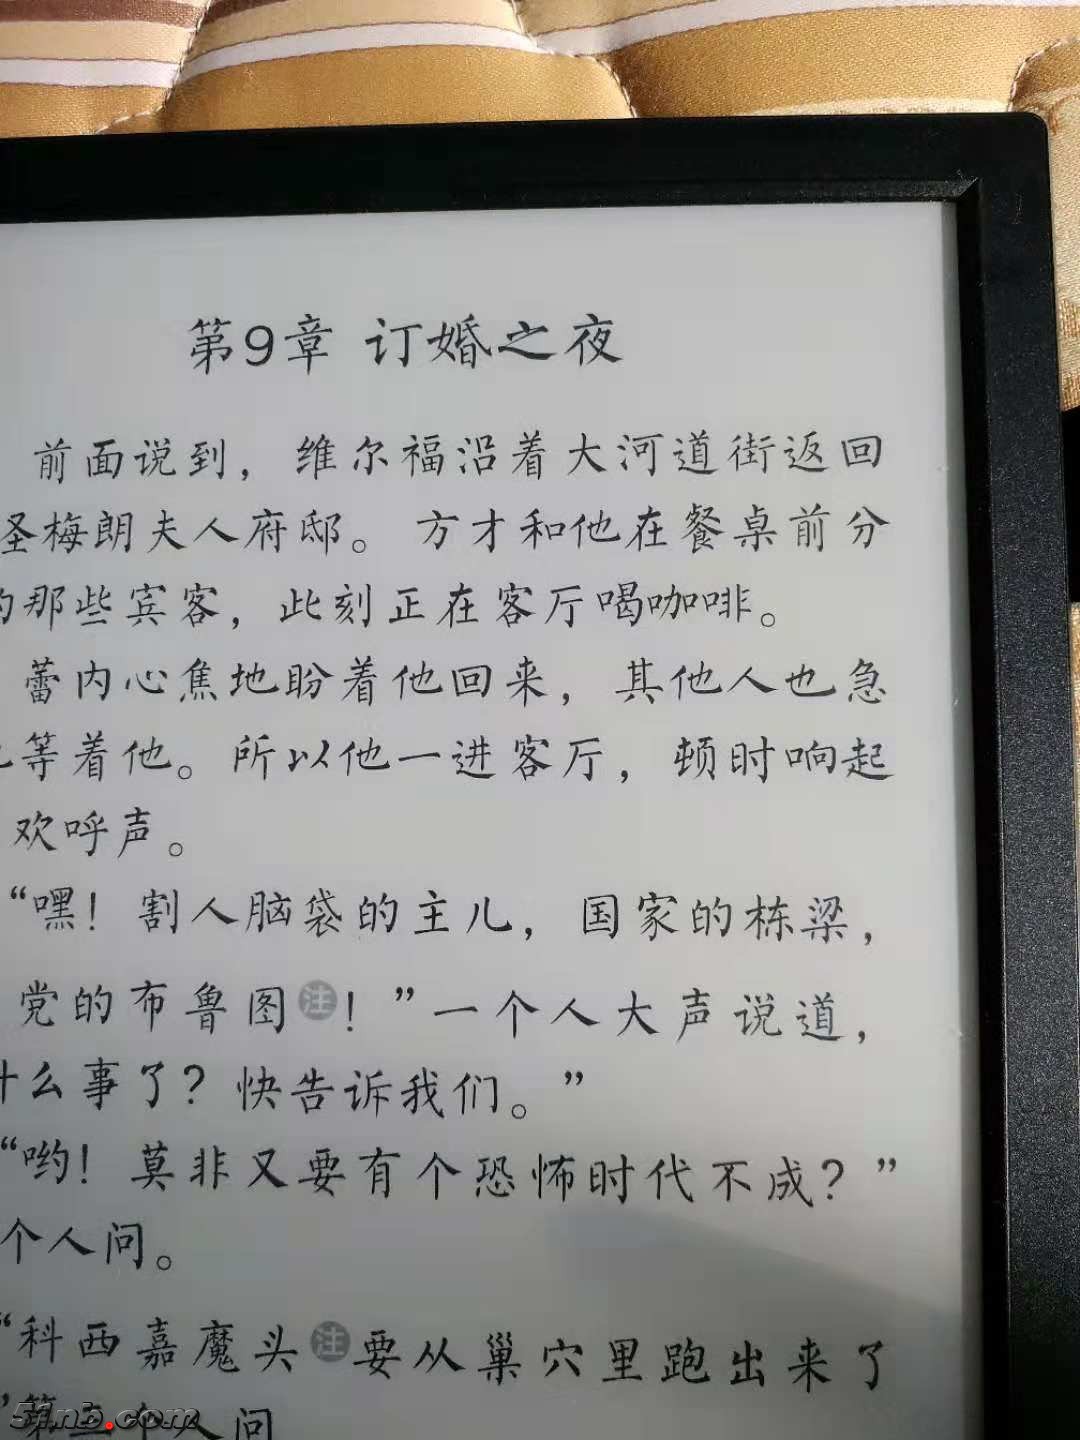 第9章 订婚之夜
前面说到，维尔福沿着大河道街返回
圣梅朗夫人府邸。方才和他在餐桌前分
的那些宾客，此刻正在客厅喝咖啡。
蕾内心焦地盼着他回来，其他人也急
等着他。所以他一进客厅，顿时响起
欢呼声。
“嘿！割人脑袋的主儿，国家的栋梁，
党的布鲁图注！”一个人大声说道，
什么事了？快告诉我们。”
“哟！莫非又要有个恐怖时代不成？”
个人问。
“科西嘉魔头注要从巢穴里跑出来了
”第三个人问
51nb.com